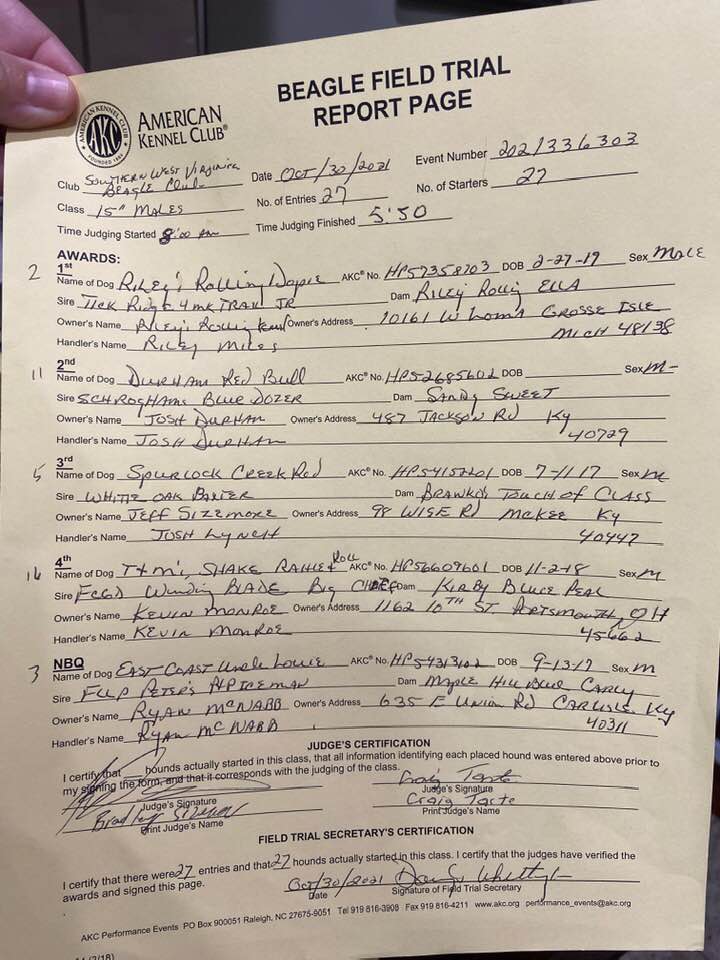 BEAGLE FIELD TRIAL
REPORT PAGE
AMERICAN KENNEL CLUB
AKC
AMERICAN
KENNEL CLUB®
FOUNDED 1884
Club SOUTHERN WEST VIRGINIA BEAGLE CLUB Date OCT/30/2021 Event Number 2021336303
Class 15" MALES No. of Entries 27 No. of Starters 27
Time Judging Started 8:00 AM Time Judging Finished 5:50
AWARDS:
2 1st
Name of Dog RILEY'S ROLLING AKC® No. HP57358703 DOB 2-27-19 Sex MALE
Sire TICK RIDGE TRAX JR Dam RILEY ROLLING ELLA
Owner's Name RILEY'S ROLLING Owner's Address 10161 W GROSSE ISLE
MICH 48138
Handler's Name RILEY MILES
11 2nd
Name of Dog DURHAM RED BULL AKC® No. HP52685602 DOB Sex M-
Sire SCHROGHAMS BLUE DOZER Dam SANDY SWEET
Owner's Name JOSH DURHAM Owner's Address 487 JACKSON RD KY
40729
Handler's Name JOSH DURHAM
5 3rd
Name of Dog SPURLOCK CREEK RED AKC® No. HP54152201 DOB 7-11-17 Sex M
Sire WHITE OAK BAXTER Dam TOUCH OF CLASS
Owner's Name JEFF SIZEMORE Owner's Address 98 WISE RD MCKEE KY
40447
Handler's Name JOSH LYNCH
16 4th
Name of Dog T&M'S SHAKE RATTLE & ROLL AKC® No. HP56609601 DOB 11-2-18 Sex M
Sire FCGD WINDING BLADE BIG CHIEF Dam KIRBY BLUCE PEAL
Owner's Name KEVIN MONROE Owner's Address 1162 10TH ST PORTSMOUTH, OH
45662
Handler's Name KEVIN MONROE
3 NBQ
Name of Dog EAST COAST UNCLE LOUIE AKC® No. HP54313102 DOB 9-13-17 Sex M
Sire PETER'S Dam MAPLE HILL BLUE CARLY
Owner's Name RYAN MCNABB Owner's Address 635 E UNION RD CARLISLE, KY
40311
Handler's Name RYAN MCNABB
JUDGE'S CERTIFICATION
I certify that hounds actually started in this class, that all information identifying each placed hound was entered above prior to
my signing the form, and that it corresponds with the judging of the class.
Craig Taste
Judge's Signature Judge's Signature
Bradley Craig Taste
Print Judge's Name Print Judge's Name
FIELD TRIAL SECRETARY'S CERTIFICATION
I certify that there were 27 entries and that 27 hounds actually started in this class. I certify that the judges have verified the
awards and signed this page.
Oct/30/2021
Date Signature of Field Trial Secretary
AKC Performance Events PO Box 900051 Raleigh, NC 27675-9051 Tel 919 816-3908 Fax 919 816-4211 www.akc.org performance_events@akc.org